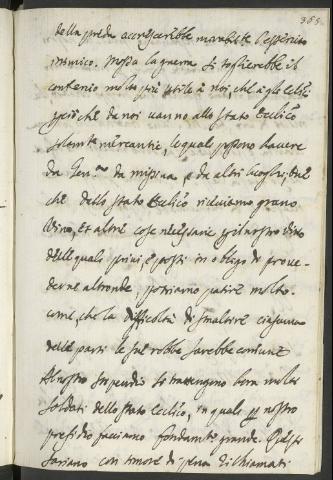 365
della preda accrescerebbe mirabilmte l'essercito
nimico. Mossa la guerra si toglierebbe il
comertio molto più utile à noi, che à gle Eccl.ci
perché da noi vanno allo stato Ecclico
solamte mercantie, le quali possono havere
da Gen.va da Messina, e da altri luoghi, dove
che dello stato Ecclico riceviamo grano
Vino, et altre cose necessarie per il nostro vitto
delle quali prima posti in obligo di prove-
derne altronde, potriamo patire molto.
come, che la difficoltà di smaltire ciascuna
delle parti le sue robbe sarebbe comune
Al nostro stipendio si trattengono bora molti
soldati dello stato Ecclico, in quali per nostro
presidio facciamo fondamto grande. Questi
sariano con timore di pena richiamati